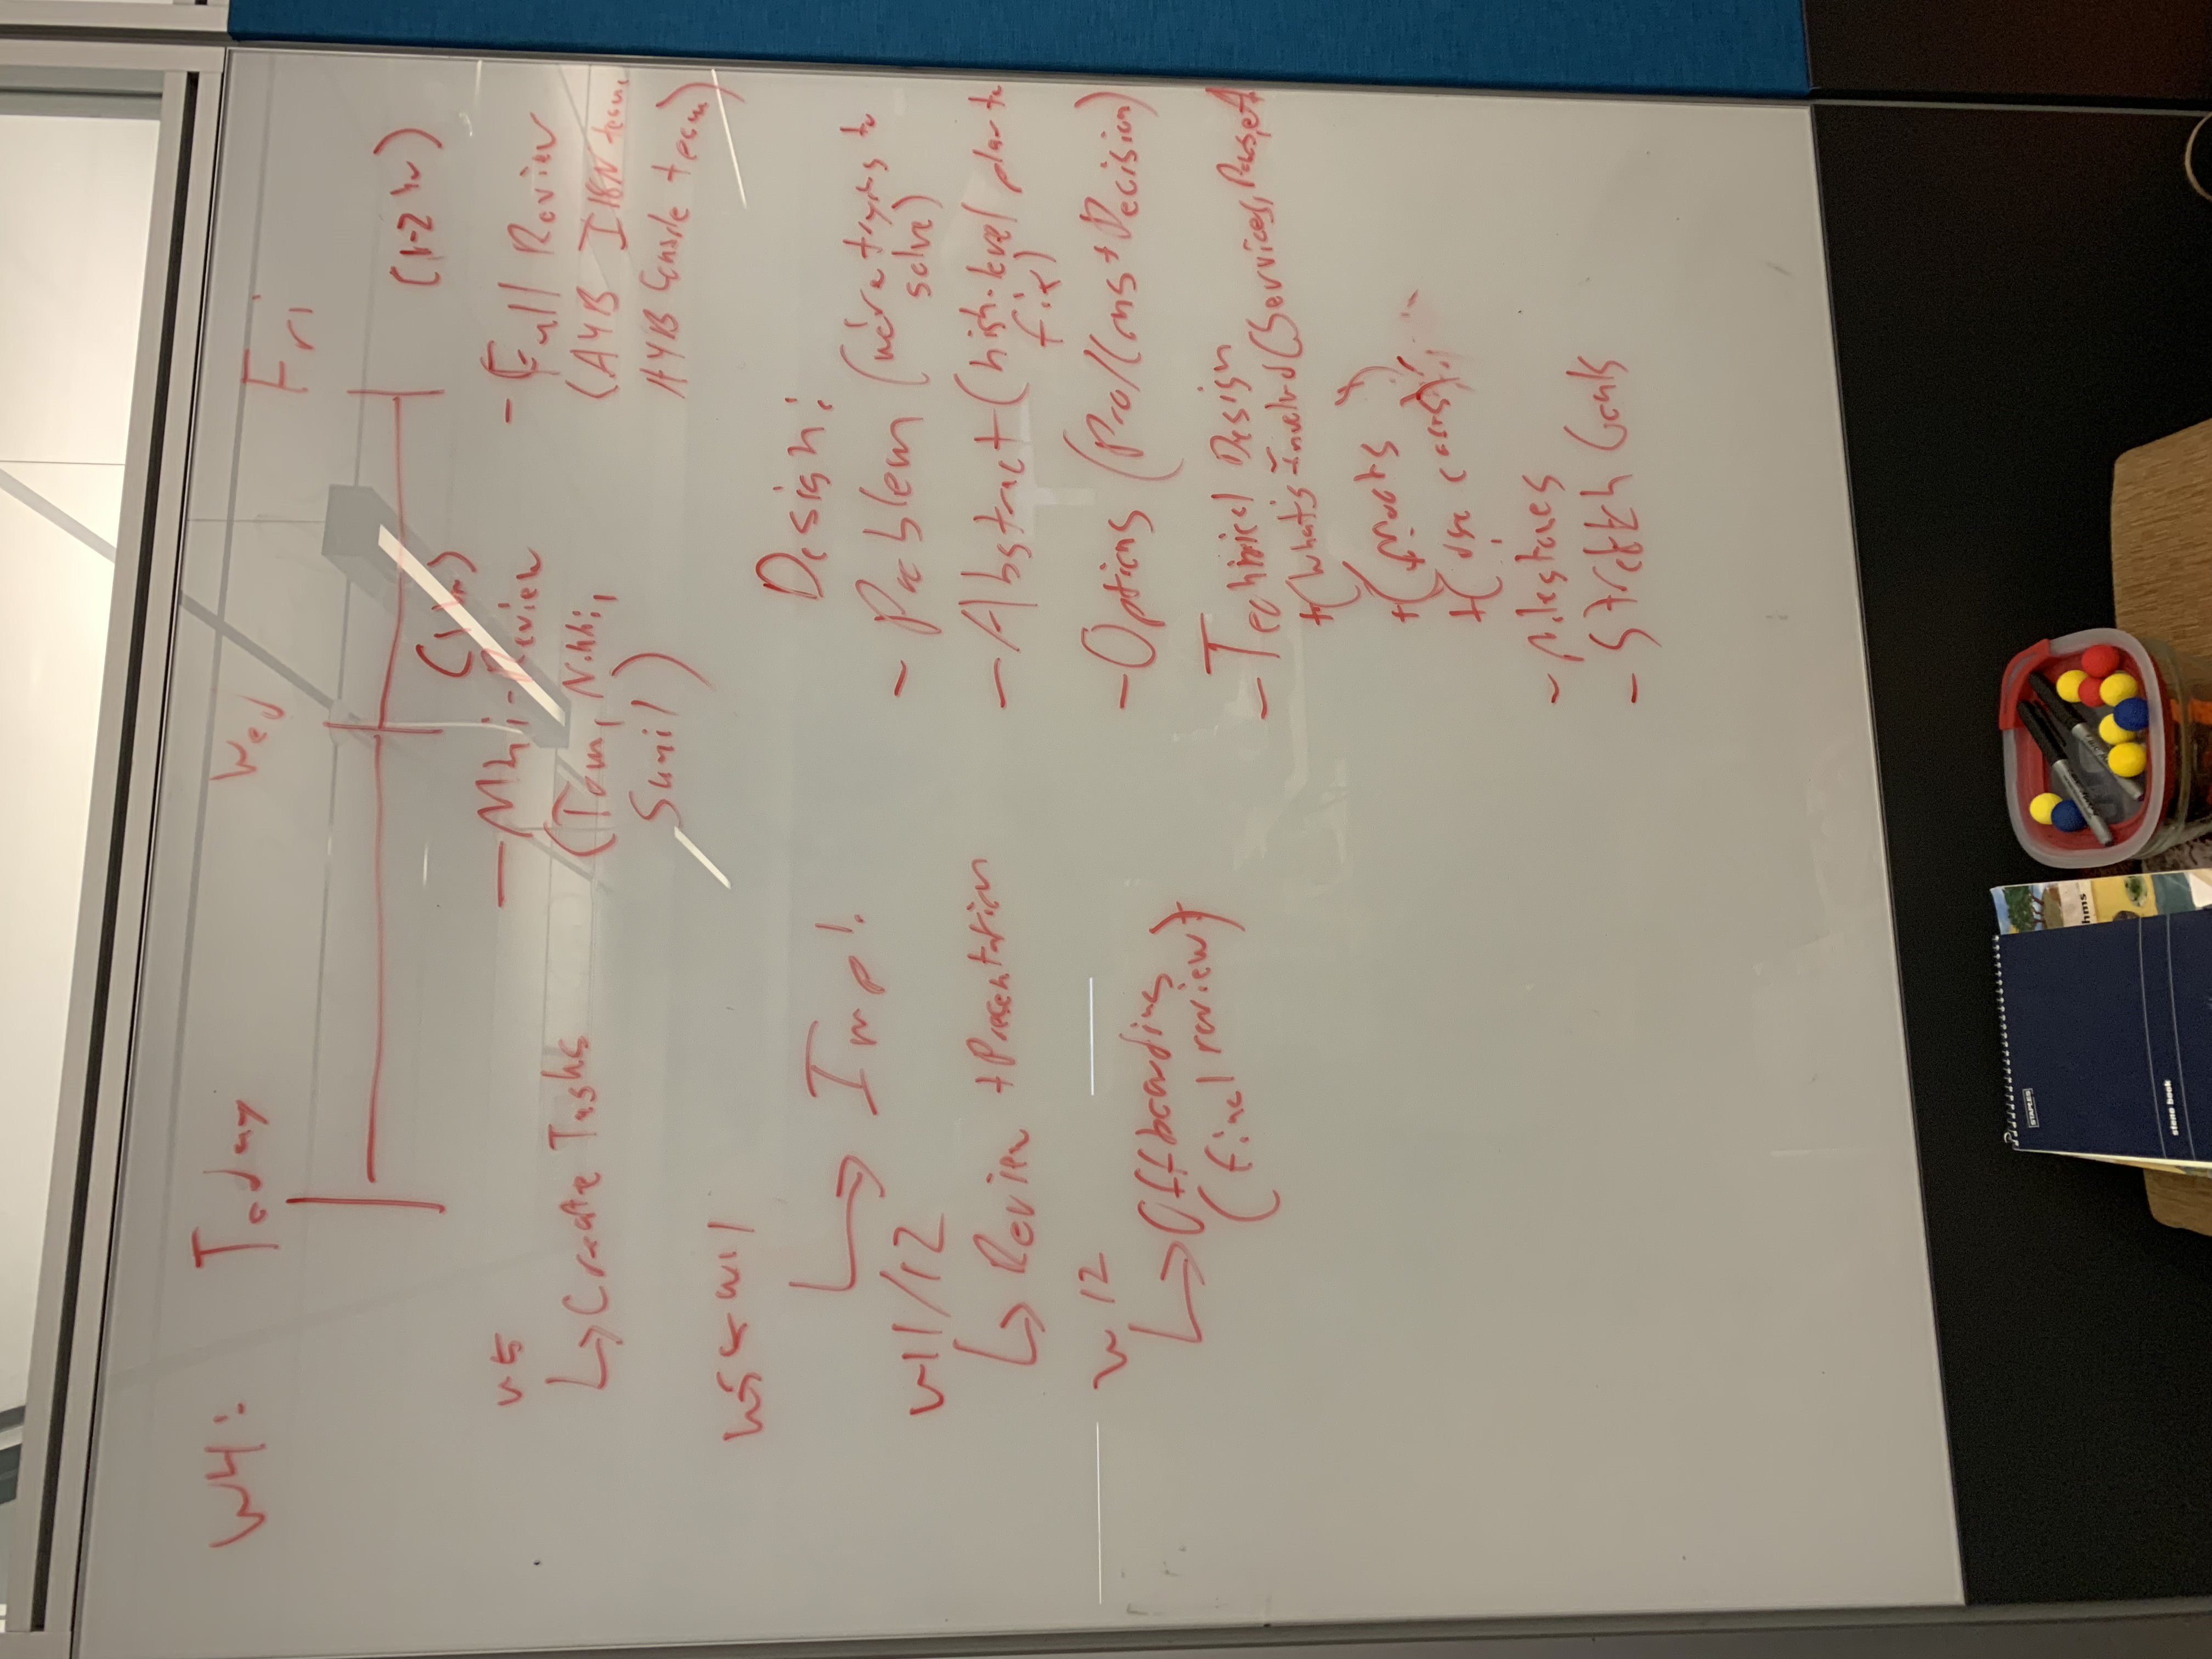 W4: Today Wed Fri
(1 hr) (1-2 hr)
W5
↳ Create Tasks
— Mini-Review
(Tom, Nikki,
Sunil)
- Full Review
(AYB I18N team,
AYB Console team)
W5 ← W11
↳ Impl.
W11/12
↳ Review + Presentation
W12
↳ Offboarding
(final review)
Design:
- Problem (we're trying to
solve)
- Abstract (high-level plan to
fix)
- Options (Pro/Cons + Decision)
- Technical Design
+ (What's Involved (Services, etc)
+ (Mocks)
+ (use cases)
- Milestones
- Stretch Goals
STAPLES
steno book
hms